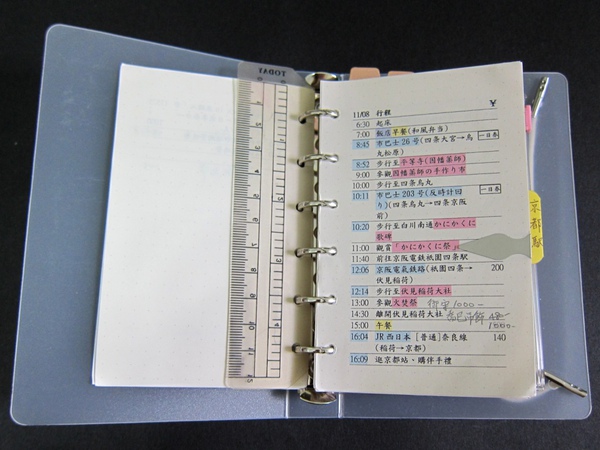 TODAY
11/08 行程 ¥
6:30 起床
7:00 飯店早餐(和風弁当)
8:45 市巴士26号(四条大宮→烏 一日券
丸松原)
8:52 步行至平等寺(因幡薬師)
9:00 參觀因幡薬師の手作り市
10:00 步行至四条烏丸
10:11 市巴士203号(反時計回 一日券
り)(四条烏丸→四条京阪
前)
10:20 步行至白川南通かにかくに
歌碑
11:00 觀賞「かにかくに祭」
11:40 前往京阪電鐵祇園四条駅
12:06 京阪電氣鉄路(祇園四条→ 200
伏見稲荷)
12:14 步行至伏見稲荷大社
13:00 參觀火焚祭 1000-
14:30 離開伏見稲荷大社
15:00 午餐
16:04 JR西日本[普通]奈良線 140
(稲荷→京都)
16:09 逛京都站、購伴手禮
京都駅